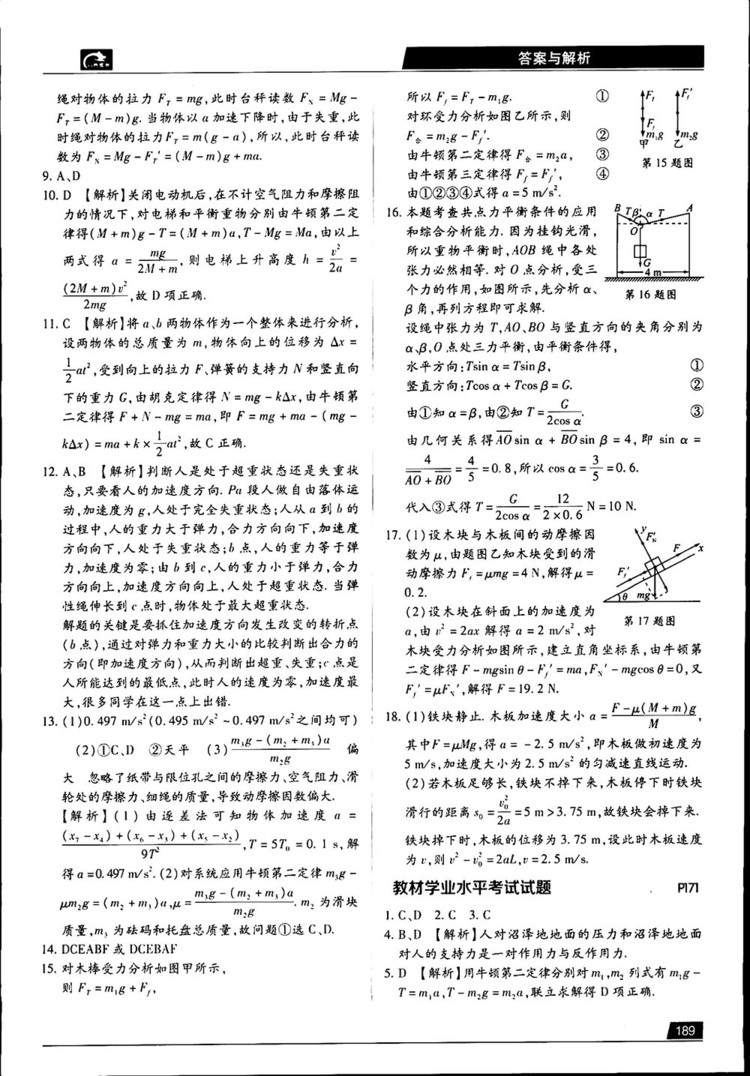 答案与解析
绳对物体的拉力 F_T = mg,此时台秤读数 F_N = Mg −
F_T = (M − m)g. 当物体以 a 加速下降时,由于失重,此
时绳对物体的拉力F_T = m(g − a),所以,此时台秤读
数为 F_N = Mg − F_T′ = (M − m)g + ma.
9. A、D
10. D 【解析】关闭电动机后,在不计空气阻力和摩擦阻
力的情况下,对电梯和平衡重物分别由牛顿第二定
律得(M + m)g − T = (M + m)a,T − Mg = Ma,由以上
两式得 a = mg/(2M + m),则电梯上升高度 h = v²/2a =
(2M + m)v²/2mg,故 D 项正确.
11. C 【解析】将 a、b 两物体作为一个整体来进行分析,
设两物体的总质量为 m,物体向上的位移为 Δx =
1/2 at²,受到向上的拉力 F、弹簧的支持力 N 和竖直向
下的重力 G,由胡克定律得 N = mg − kΔx,由牛顿第
二定律得 F + N − mg = ma,即 F = mg + ma − (mg −
kΔx) = ma + k × 1/2 at²,故 C 正确.
12. A、B 【解析】判断人是处于超重状态还是失重状
态,只要看人的加速度方向. Pa 段人做自由落体运
动,加速度为 g,人处于完全失重状态;人从 a 到 b 的
过程中,人的重力大于弹力,合力方向向下,加速度
方向向下,人处于失重状态;b 点,人的重力等于弹
力,加速度为零;由 b 到 c,人的重力小于弹力,合力
方向向上,加速度方向向上,人处于超重状态. 当弹
性绳伸长到 c 点时,物体处于最大超重状态.
解题的关键是要抓住加速度方向发生改变的转折点
(b 点),通过对弹力和重力大小的比较判断出合力的
方向(即加速度方向),从而判断出超重、失重;c 点是
人所能达到的最低点,此时人的速度为零,加速度最
大,很多同学在这一点上出错.
13. (1)0.497 m/s²(0.495 m/s² ~ 0.497 m/s²之间均可)
(2)①C、D ②天平 (3) [m₃g − (m₂ + m₃)a]/m₂g 偏
大 忽略了纸带与限位孔之间的摩擦力、空气阻力、滑
轮处的摩擦力、细绳的质量,导致动摩擦因数偏大.
【解析】(1)由逐差法可知物体加速度 a =
[(x₇ − x₄) + (x₆ − x₃) + (x₅ − x₂)]/9T²,T = 5T₀ = 0.1 s,解
得 a = 0.497 m/s². (2)对系统应用牛顿第二定律 m₃g −
μm₂g = (m₂ + m₃)a,μ = [m₃g − (m₂ + m₃)a]/m₂g. m₂ 为滑块
质量,m₃ 为砝码和托盘总质量,故问题①选 C、D.
14. DCEABF 或 DCEBAF
15. 对木棒受力分析如图甲所示,
则 F_T = m₁g + F_f,
所以 F_f = F_T − m₁g. ①
对环受力分析如图乙所示,则
F合 = m₂g − F_f′. ②
由牛顿第二定律得 F合 = m₂a, ③
由牛顿第三定律得 F_f = F_f′, ④
由①②③④式得 a = 5 m/s².
F_T F_f′
F_f
m₁g m₂g
甲 乙
第 15 题图
16. 本题考查共点力平衡条件的应用
和综合分析能力. 因为挂钩光滑,
所以重物平衡时,AOB 绳中各处
张力必然相等. 对 O 点分析,受三
个力的作用,如图所示,先分析 α、
β 角,再列方程即可求解.
B T β α T A
O
G
4 m
第 16 题图
设绳中张力为 T,AO、BO 与竖直方向的夹角分别为
α、β,O 点处三力平衡,由平衡条件得,
水平方向:Tsin α = Tsin β, ①
竖直方向:Tcos α + Tcos β = G. ②
由①知 α = β,由②知 T = G/2cos α. ③
由几何关系得AO sin α + BO sin β = 4,即 sin α =
4/(AO + BO) = 4/5 = 0.8,所以 cos α = 3/5 = 0.6.
代入③式得 T = G/2cos α = 12/(2 × 0.6) N = 10 N.
17. (1)设木块与木板间的动摩擦因
数为 μ,由题图乙知木块受到的滑
动摩擦力 F_f = μmg = 4 N,解得 μ =
0.2.
(2)设木块在斜面上的加速度为
a,由 v² = 2ax 解得 a = 2 m/s²,对
y F_N′ F x
F_f′
θ mg
第 17 题图
木块受力分析如图所示,建立直角坐标系,由牛顿第
二定律得 F − mgsin θ − F_f′ = ma,F_N′ − mgcos θ = 0,又
F_f′ = μF_N′,解得 F = 19.2 N.
18. (1)铁块静止. 木板加速度大小 a = [F − μ(M + m)g]/M,
其中F = μMg,得 a = − 2.5 m/s²,即木板做初速度为
5 m/s,加速度大小为 2.5 m/s² 的匀减速直线运动.
(2)若木板足够长,铁块不掉下来,木板停下时铁块
滑行的距离 s₀ = v₀²/2a = 5 m > 3.75 m,故铁块会掉下来.
铁块掉下时,木板的位移为 3.75 m,设此时木板速度
为 v,则 v² − v₀² = 2aL,v = 2.5 m/s.
教材学业水平考试试题 P171
1. C、D 2. C 3. C
4. B、D 【解析】人对沼泽地地面的压力和沼泽地地面
对人的支持力是一对作用力与反作用力.
5. D 【解析】用牛顿第二定律分别对 m₁,m₂ 列式有 m₁g −
T = m₁a,T − m₂g = m₂a,联立求解得 D 项正确.
189